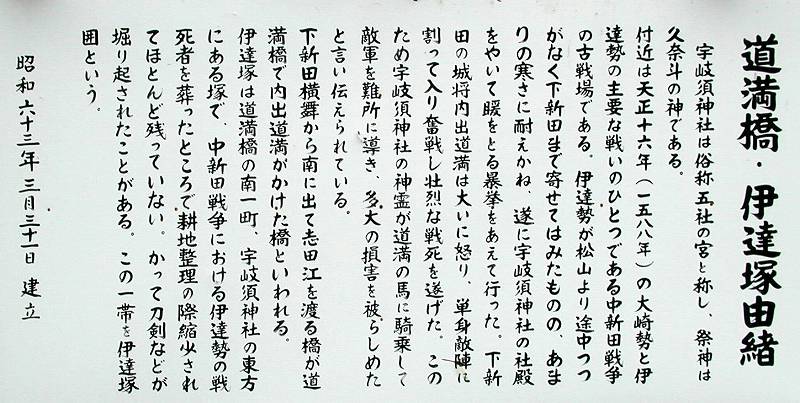 道満橋・伊達塚由緒
宇岐須神社は俗称五社の宮と称し、祭神は
久奈斗の神である。
付近は天正十六年（一五八八年）の大崎勢と伊
達勢の主要な戦いのひとつである中新田戦争
の古戦場である。伊達勢が松山より途中つつ
がなく下新田まで寄せてはみたものの、あま
りの寒さに耐えかね、遂に宇岐須神社の社殿
をやいて暖をとる暴挙をあえて行った。下新
田の城将内出道満は大いに怒り、単身敵陣に
割って入り奮戦し壮烈な戦死を遂げた。この
ため宇岐須神社の神霊が道満の馬に騎乗して
敵軍を難所に導き、多大の損害を被らしめた
と言い伝えられている。
下新田横舞から南に出て志田江を渡る橋が道
満橋で内出道満がかけた橋といわれる。
伊達塚は道満橋の南一町、宇岐須神社の東方
にある塚で、中新田戦争における伊達勢の戦
死者を葬ったところで耕地整理の際縮少され
てほとんど残っていない。かって刀剣などが
堀り起されたことがある。この一帯を伊達塚
囲という。
昭和六十三年三月三十一日 建立